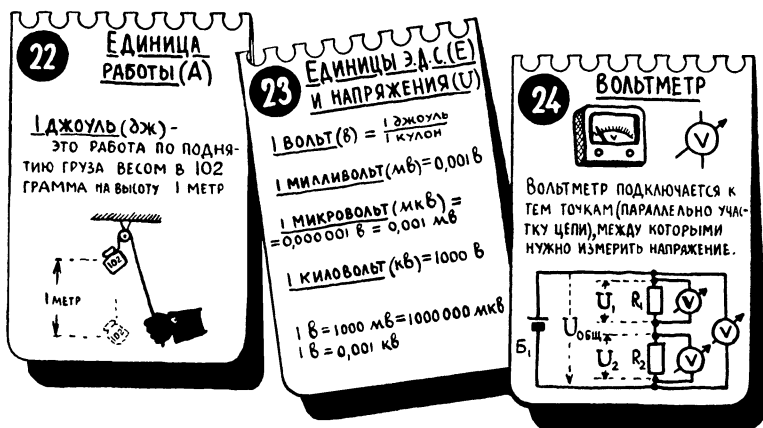 22
ЕДИНИЦА
РАБОТЫ(А)
1 ДЖОУЛЬ(дж)-
ЭТО РАБОТА ПО ПОДНЯ-
ТИЮ ГРУЗА ВЕСОМ В 102
ГРАММА НА ВЫСОТУ 1 МЕТР
102
1 МЕТР
102
23
ЕДИНИЦЫ Э.Д.С.(Е)
И НАПРЯЖЕНИЯ(U)
1 ВОЛЬТ(в) = 1 ДЖОУЛЬ / 1 КУЛОН
1 МИЛЛИВОЛЬТ(мв)=0,001 в
1 МИКРОВОЛЬТ(мкв)=
=0,000 001 в = 0,001 мв
1 КИЛОВОЛЬТ(кв)=1000 в
1 в=1000 мв=1000000 мкв
1 в=0,001 кв
24
ВОЛЬТМЕТР
V
V
ВОЛЬТМЕТР ПОДКЛЮЧАЕТСЯ К
ТЕМ ТОЧКАМ(ПАРАЛЛЕЛЬНО УЧАС-
ТКУ ЦЕПИ),МЕЖДУ КОТОРЫМИ
НУЖНО ИЗМЕРИТЬ НАПРЯЖЕНИЕ.
U₁ R₁ V
Б₁ Uобщ V
U₂ R₂ V